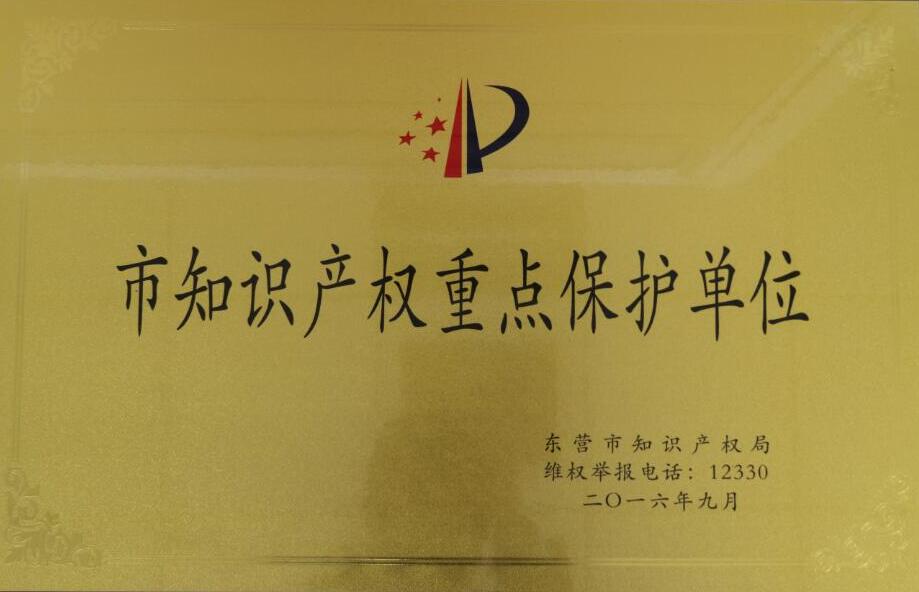 市知识产权重点保护单位
东营市知识产权局
维权举报电话：12330
二〇一六年九月